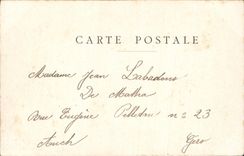 CARTE POSTALE
Madame Jean Labadens
De Matha
Rue Eugène Pelletan nº 23
Auch Gers